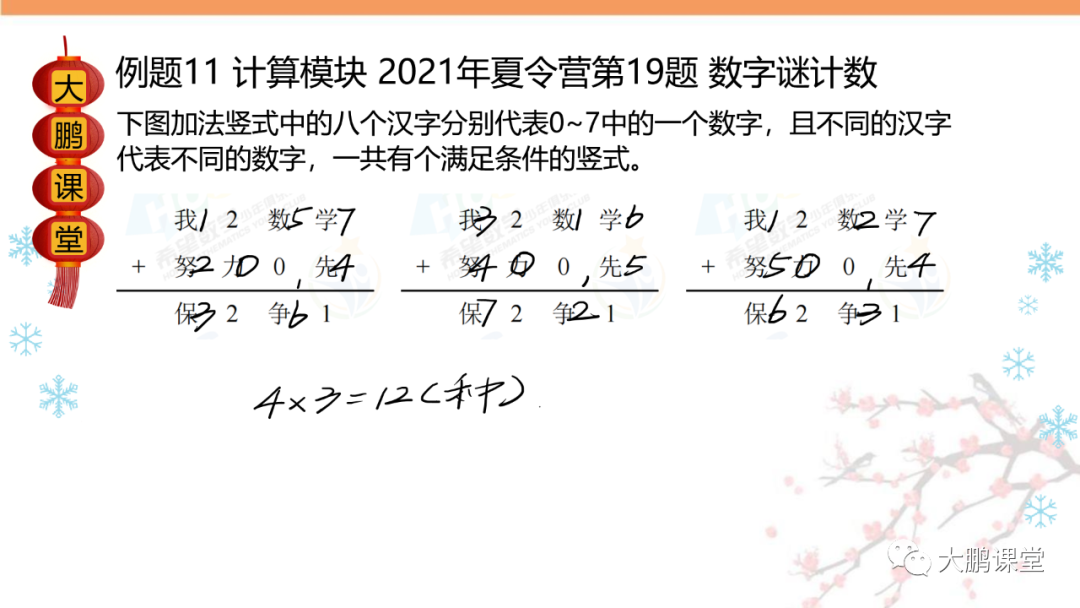 大鹏课堂
例题11 计算模块 2021年夏令营第19题 数字谜计数
下图加法竖式中的八个汉字分别代表0~7中的一个数字，且不同的汉字
代表不同的数字，一共有个满足条件的竖式。
我1 2 数5 学7
+ 努2 力0 0 先4
保3 2 争6 1
我3 2 数1 学6
+ 努4 力0 0 先5
保7 2 争2 1
我1 2 数2 学7
+ 努5 力0 0 先4
保6 2 争3 1
4×3=12(种)
大鹏课堂